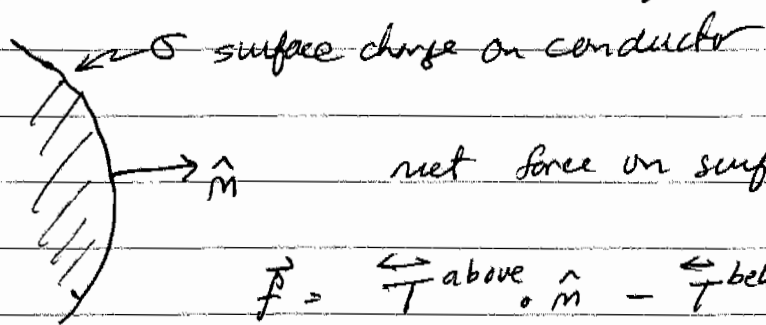 σ surface charge on conductor
n̂ net force on surf
f⃗ = T⃡ above · n̂ - T⃡ bel